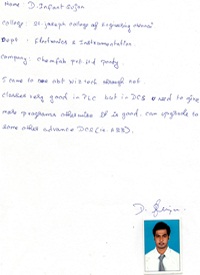 Name: D. Infant Sujan
College: St. Joseph college of Engineering
Dept: Electronics & Instrumentation
Company: Chemfab pvt ltd
I came to now abt through not.
Classes very good in PLC but in DCS U need to give
more programs otherwise it is good. can upgrade to
some other advance DCS (ie. ABB).
D.